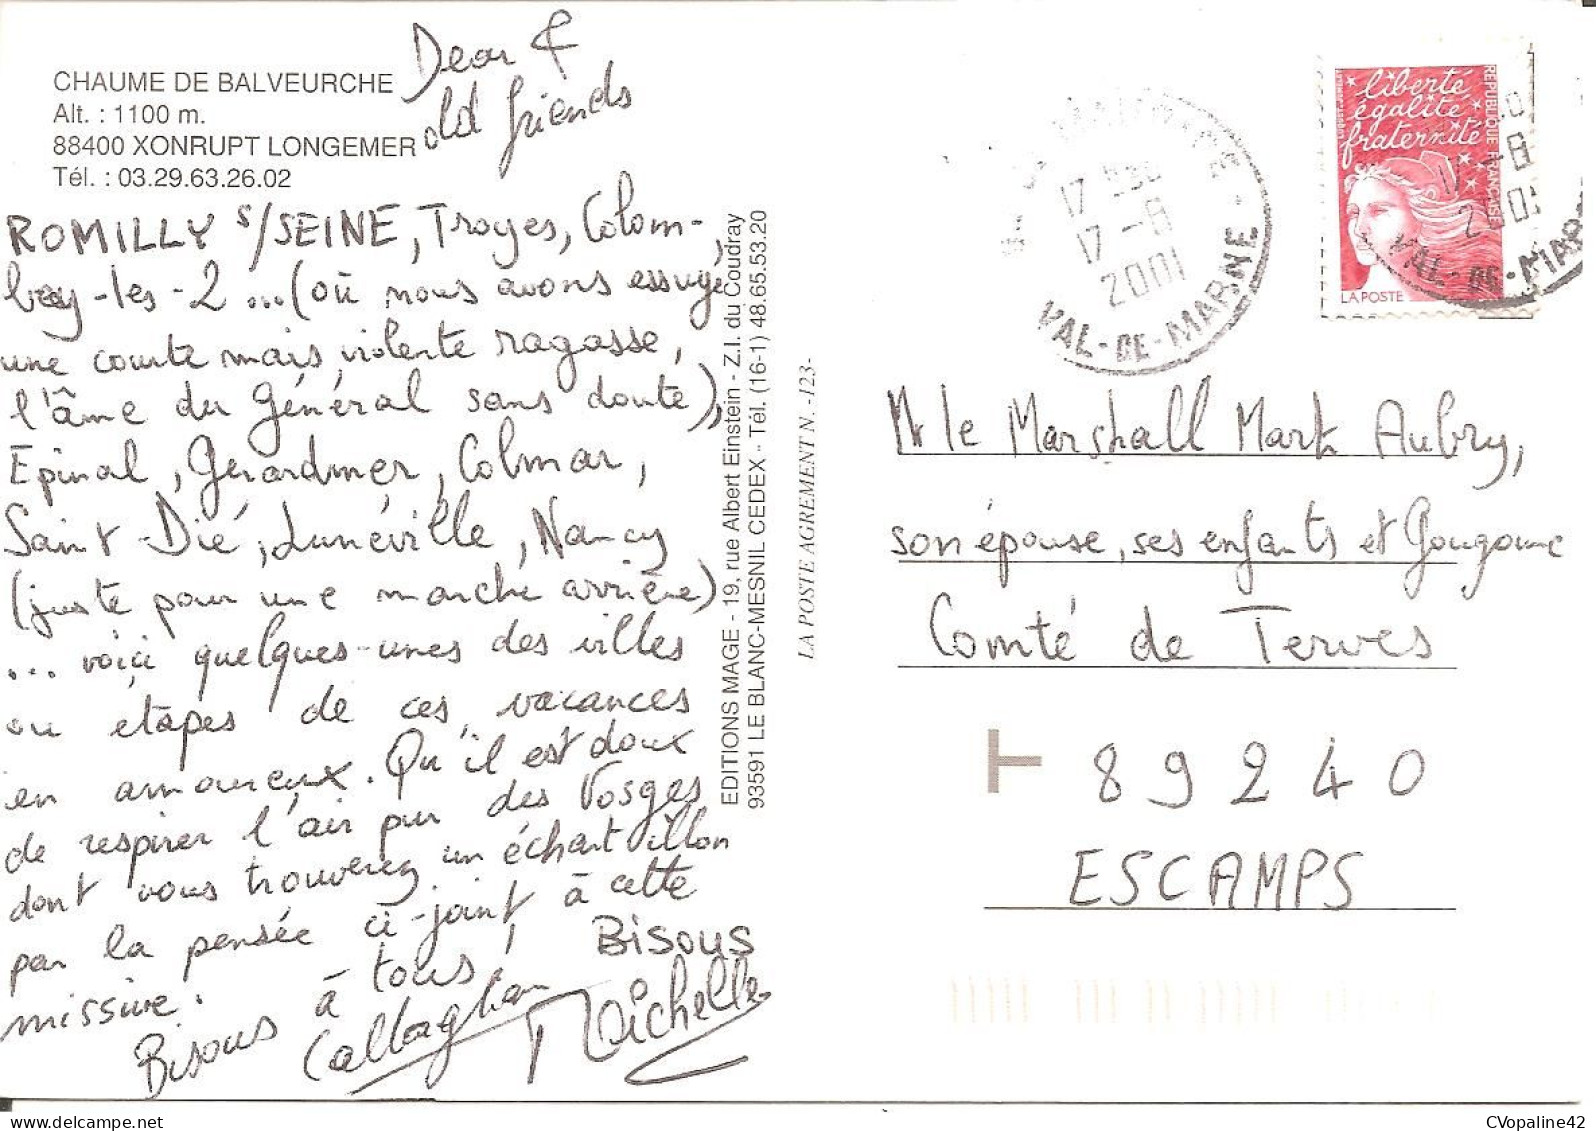 CHAUME DE BALVEURCHE
Alt. : 1100 m.
88400 XONRUPT LONGEMER
Tél. : 03.29.63.26.02
Dear &
old friends
ROMILLY s/SEINE, Troyes, Colom-
bey-les-2 ... (où nous avons essuyé
une courte mais violente ragasse,
l'âme du Général sans doute),
Epinal, Gérardmer, Colmar,
Saint-Dié, Lunéville, Nancy
(juste pour une marche arrière)
... voici quelques-unes des villes
ou étapes de ces vacances
en amoureux. Qu'il est doux
de respirer l'air pur des Vosges
dont vous trouverez un échantillon
par la pensée ci-joint à cette
missive.
Bisous à tous,
Callaghan
Bisous
Michelle
EDITIONS MAGE - 19, rue Albert Einstein - Z.I. du Coudray
93591 LE BLANC-MESNIL CEDEX - Tél. (16-1) 48.65.53.20
LA POSTE AGREMENT N. -123-
17
17 -8
2001
VAL-DE-MARNE
liberté
égalité
fraternité
REPUBLIQUE FRANÇAISE
LA POSTE
-8
2001
VAL-DE-MAR
Mr le Marshall Mark Aubry,
son épouse, ses enfants et Gougoune
Comté de Terves
89240
ESCAMPS
CVopaline42